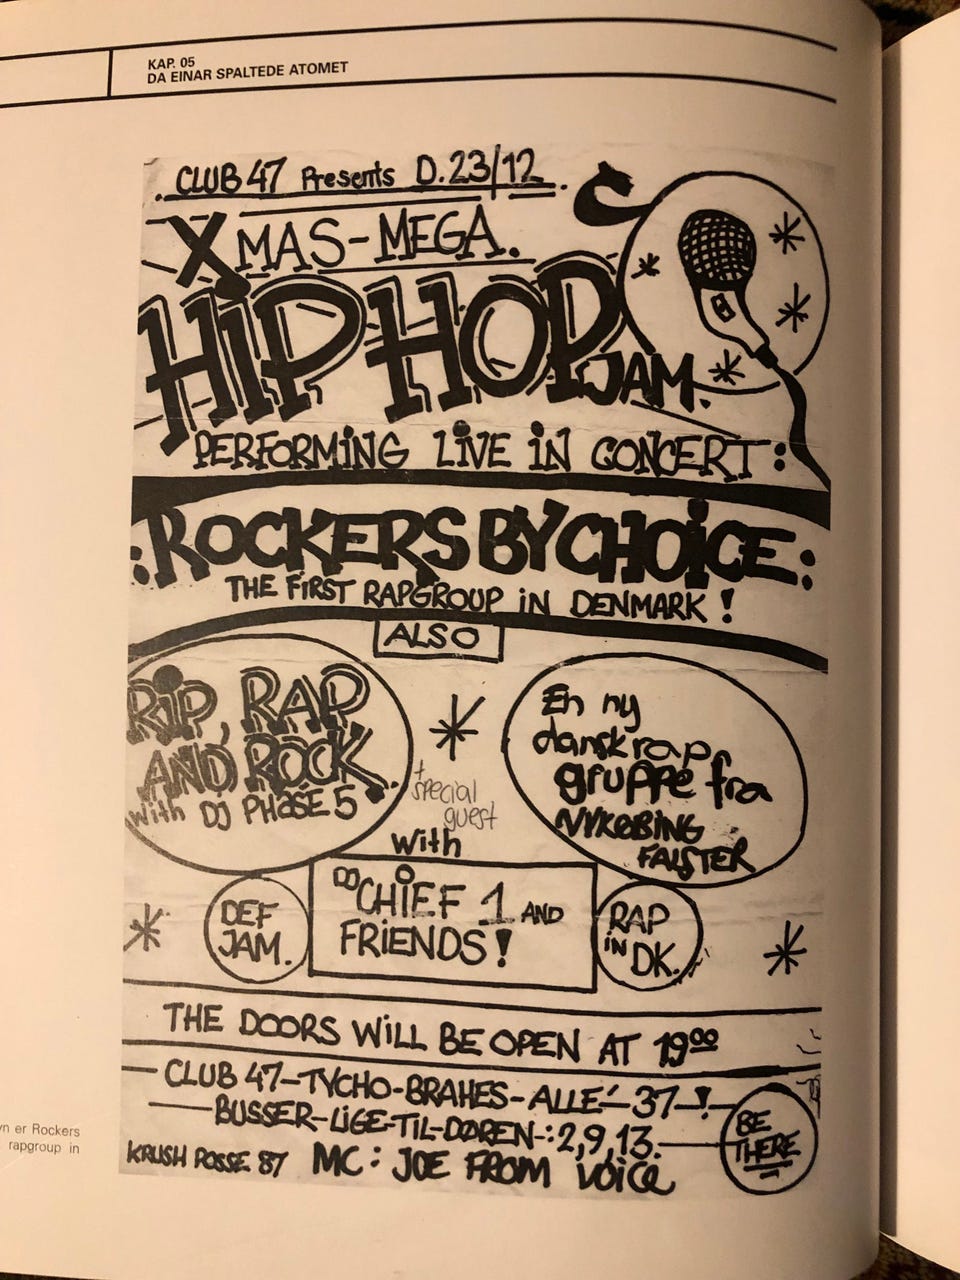 KAP. 05
DA EINAR SPALTEDE ATOMET
CLUB 47 Presents D. 23/12.
XMAS-MEGA.
HIPHOP JAM.
PERFORMING LIVE IN CONCERT:
:ROCKERS BY CHOICE:
THE FIRST RAPGROUP IN DENMARK!
ALSO
RIP, RAP
AND ROCK.
with DJ PHASE 5
+ special
guest
En ny
dansk rap
gruppe fra
NYKØBING
FALSTER
with
DJ CHIEF 1 AND
FRIENDS!
DEF
JAM.
RAP
IN DK.
THE DOORS WILL BE OPEN AT 19⁰⁰
CLUB 47-TYCHO-BRAHES-ALLÉ-37-!
BUSSER-LIGE-TIL-DØREN-:2,9,13.
BE
THERE
KRUSH POSSE 87 MC: JOE FROM VOICE
er Rockers
rapgroup in